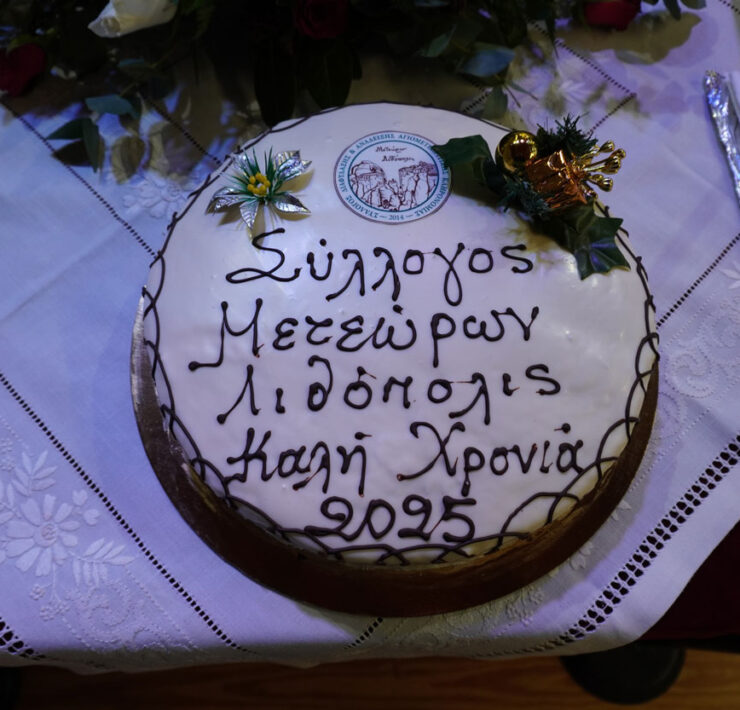 ΣΥΛΛΟΓΟΣ ΔΙΑΦΥΛΑΞΗΣ & ΑΝΑΔΕΙΞΗΣ ΑΓΙΟΜΕΤΕΩΡΙΤΙΚΗΣ ΚΛΗΡΟΝΟΜΙΑΣ
2014
Σύλλογος
Μετεώρων
Λιθόπολις
Καλή Χρονιά
2025